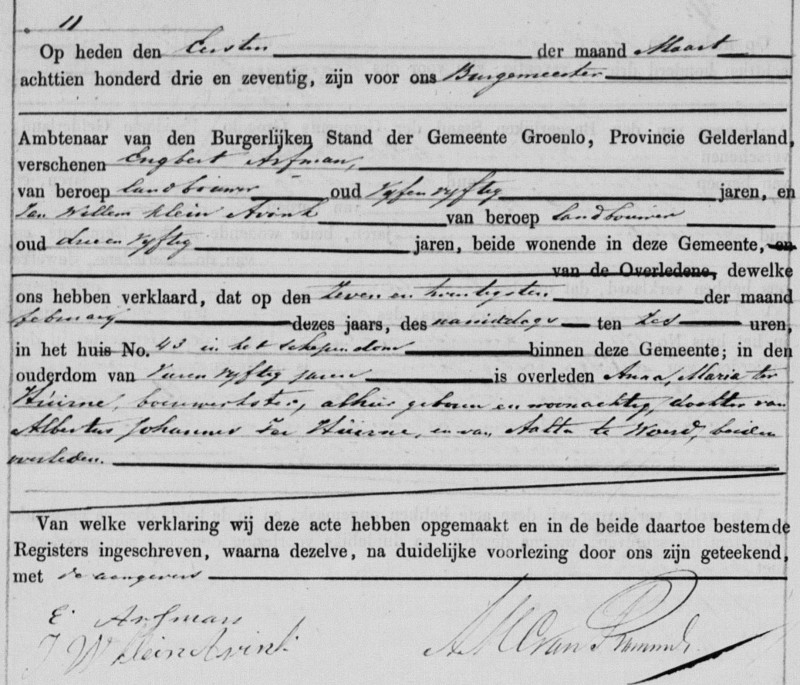 11
Op heden den Eersten der maand Maart
achttien honderd drie en zeventig, zijn voor ons Burgemeester
Ambtenaar van den Burgerlijken Stand der Gemeente Groenlo, Provincie Gelderland,
verschenen Engbert Arfman,
van beroep landbouwer oud vyfenvyftig jaren, en
Jan Willem Klein Avink van beroep landbouwer
oud drieenvyftig jaren, beide wonende in deze Gemeente, en
van de Overledene, dewelke
ons hebben verklaard, dat op den Zevenentwintigsten der maand
february dezes jaars, des namiddags ten Zes uren,
in het huis No. 43 in het schependom binnen deze Gemeente; in den
ouderdom van jaren is overleden Anna Maria ter
Hüirne, bouwwerkster, alhier geboren en woonachtig, dochter van
Albertus Johannes Ter Hüirne, en van Aaltn te Woerd, beiden
overleden.
Van welke verklaring wij deze acte hebben opgemaakt en in de beide daartoe bestemde
Registers ingeschreven, waarna dezelve, na duidelijke voorlezing door ons zijn geteekend,
met de aangevers
E Arfman
J W Klein Avink